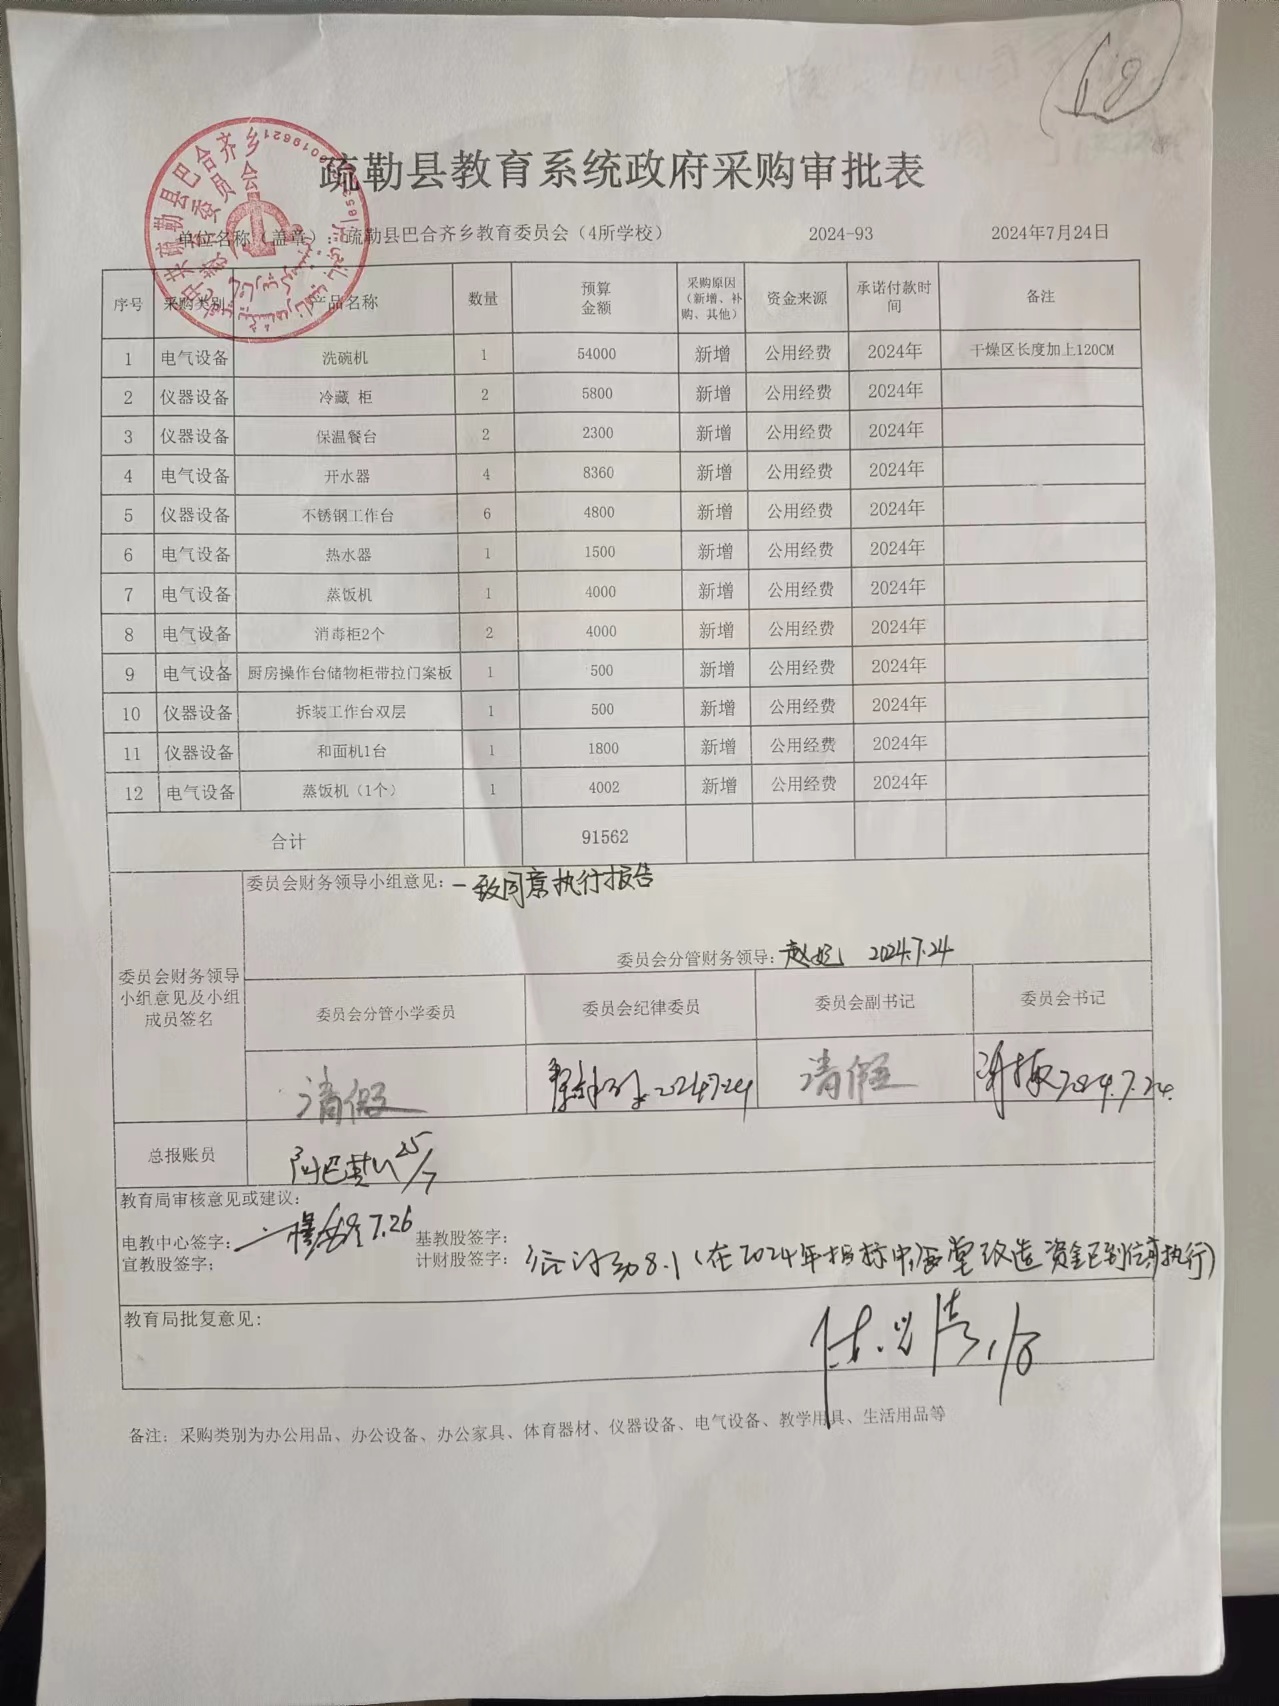 18
疏勒县教育系统政府采购审批表
单位名称（盖章）：疏勒县巴合齐乡教育委员会（4所学校） 2024-93 2024年7月24日
序号 采购类别 产品名称 数量 预算金额 采购原因（新增、补购、其他） 资金来源 承诺付款时间 备注
1 电气设备 洗碗机 1 54000 新增 公用经费 2024年 干燥区长度加上120CM
2 仪器设备 冷藏 柜 2 5800 新增 公用经费 2024年
3 仪器设备 保温餐台 2 2300 新增 公用经费 2024年
4 电气设备 开水器 4 8360 新增 公用经费 2024年
5 仪器设备 不锈钢工作台 6 4800 新增 公用经费 2024年
6 电气设备 热水器 1 1500 新增 公用经费 2024年
7 电气设备 蒸饭机 1 4000 新增 公用经费 2024年
8 电气设备 消毒柜2个 2 4000 新增 公用经费 2024年
9 电气设备 厨房操作台储物柜带拉门案板 1 500 新增 公用经费 2024年
10 仪器设备 拆装工作台双层 1 500 新增 公用经费 2024年
11 仪器设备 和面机1台 1 1800 新增 公用经费 2024年
12 电气设备 蒸饭机（1个） 1 4002 新增 公用经费 2024年
合计 91562
委员会财务领导小组意见及小组成员签名
委员会财务领导小组意见：一致同意执行报告
委员会分管财务领导： 2024.7.24
委员会分管小学委员 委员会纪律委员 委员会副书记 委员会书记
请假 2024.7.24 请假 2024.7.24.
总报账员 25/7
教育局审核意见或建议：
电教中心签字： 7.26 基教股签字：
宣教股签字； 计财股签字： 8.1（在2024年指标中食堂改造资金已到位可执行）
教育局批复意见： 1/8
备注：采购类别为办公用品、办公设备、办公家具、体育器材、仪器设备、电气设备、教学用具、生活用品等